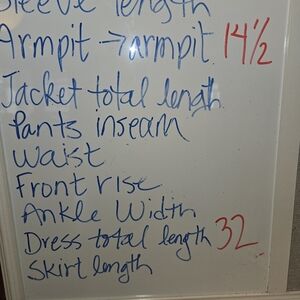 Sleeve length
Armpit → armpit 14 1/2
Jacket total length
Pants inseam
Waist
Front rise
Ankle Width
Dress total length 32
Skirt length